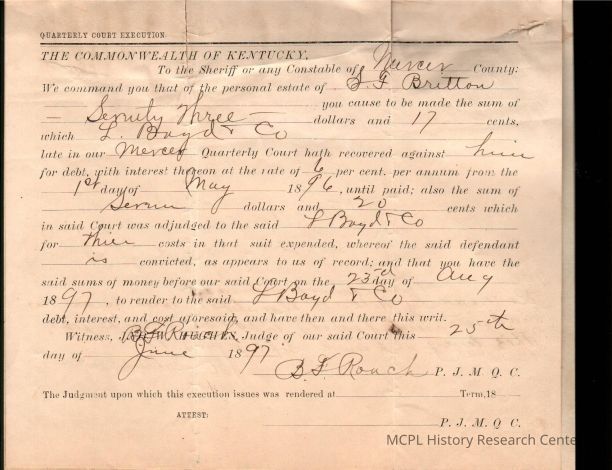 QUARTERLY COURT EXECUTION.
THE COMMONWEALTH OF KENTUCKY.
To the Sheriff or any Constable of Mercer County:
We command you that of the personal estate of B F Britton
you cause to be made the sum of
Seventy Three dollars and 17 cents,
which L. Boyd & Co
late in our Mercer Quarterly Court hath recovered against him
for debt, with interest thereon at the rate of 6 per cent. per annum from the
1st day of May 1896, until paid; also the sum of
Seven dollars and 20 cents which
in said Court was adjudged to the said L Boyd & Co
for their costs in that suit expended, whereof the said defendant
is convicted, as appears to us of record; and that you have the
said sums of money before our said Court on the 23rd day of Aug
1897, to render to the said L Boyd & Co
debt, interest, and cost aforesaid, and have then and there this writ.
Witness, B F Roach, Judge of our said Court this 25th
day of June 1897
B. F. Roach P. J. M. Q. C.
The Judgment upon which this execution issues was rendered at Term, 18
ATTEST:
P. J. M. Q. C.
MCPL History Research Cente